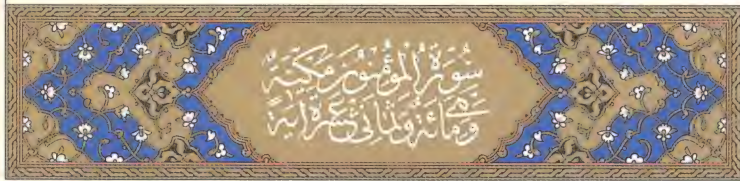 سُورَةُ الْمُؤْمِنُونَ مَكِّيَّةٌ
وَهِيَ مِائَةٌ وَثَمَانِي عَشْرَةَ آيَةً